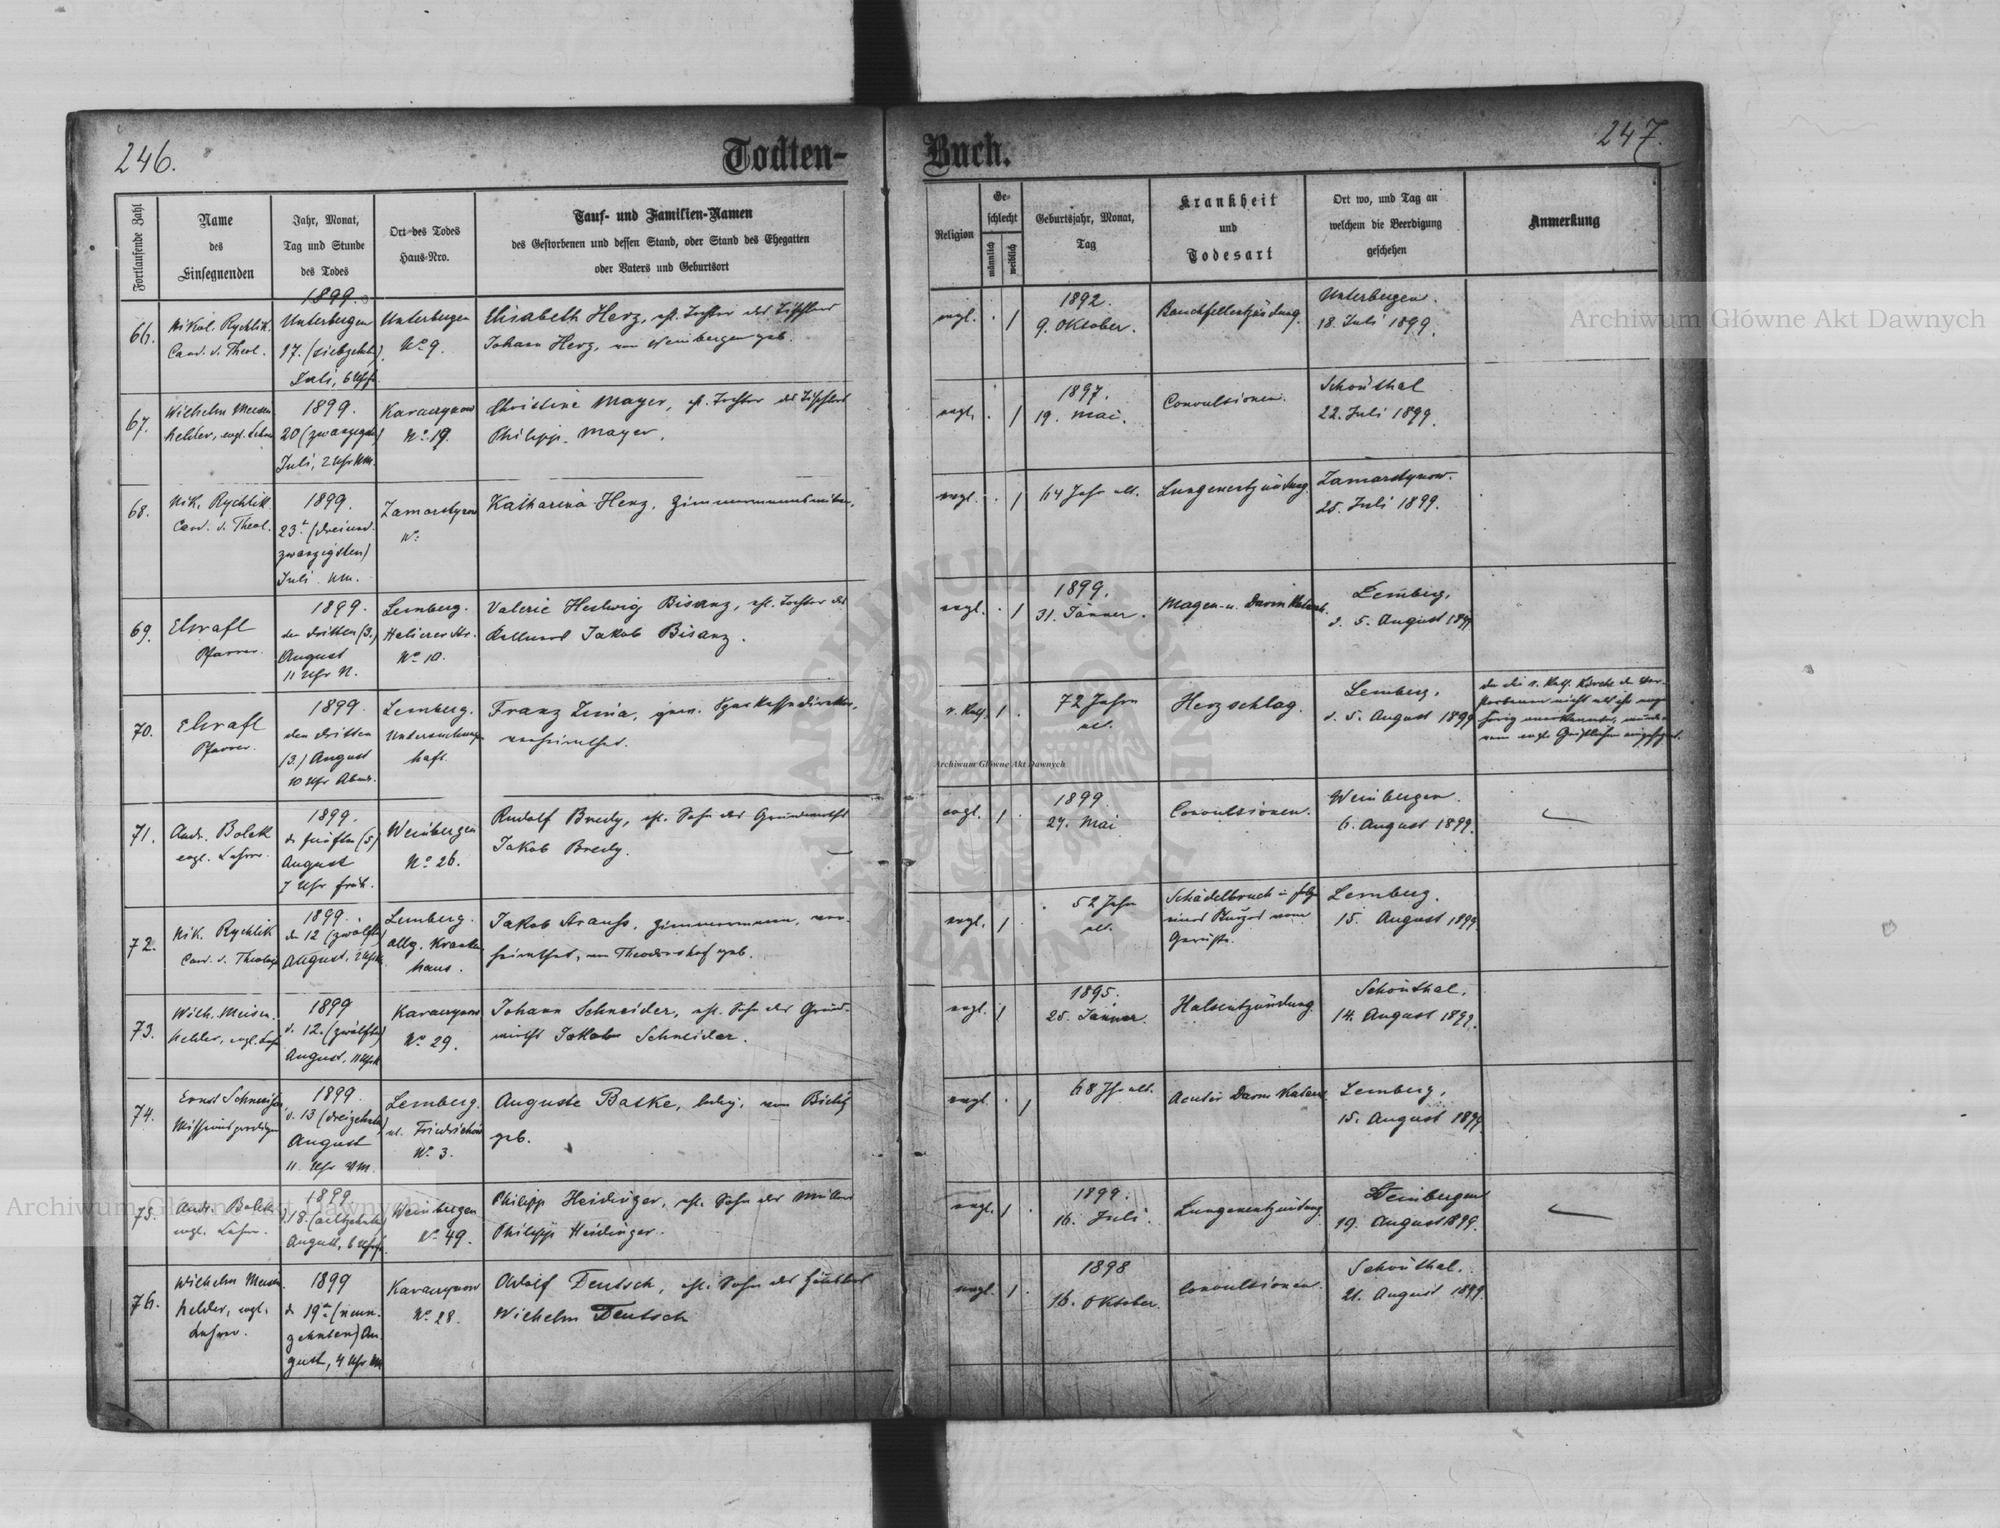 246.
Todten-
Buch.
247.
Fortlaufende Zahl
Name
des
Einsegnenden
Jahr, Monat,
Tag und Stunde
des Todes
Ort des Todes
Haus-Nro.
Tauf- und Familien-Namen
des Gestorbenen und dessen Stand, oder Stand des Ehegatten
oder Vaters und Geburtsort
Religion
Ge-
schlecht
männlich
weiblich
Geburtsjahr, Monat,
Tag
Krankheit
und
Todesart
Ort wo, und Tag an
welchem die Beerdigung
geschehen
Anmerkung
66.
Nikol. Rychlik
Cand. d. Theol.
1899.
Unterbergen
17. (siebzehn)
Juli, 6 Uhr
Unterbergen
No 9.
Elisabeth Herz, ehl. Tochter des Tischlers
Johann Herz, von Weinbergen geb.
evgl.
1892.
9. Oktober.
Bauchfellentzündung.
Unterbergen.
18. Juli 1899.
67.
Wilhelm Meisen
helder, evgl. Lehrer
1899.
20 (zwanzigsten)
Juli, 2 Uhr Nm.
Karaczynow
No. 19.
Christine Mayer, ehl. Tochter des Tischlers
Philipp Mayer.
evgl.
1897.
19. Mai.
Convulsionen.
Schönthal
22. Juli 1899.
68.
Nik. Rychlik
Cand. d. Theol.
1899.
23. (dreiund-
zwanzigsten)
Juli Nm.
Zamarstynow
No.
Katharina Herz, Zimmermannswitwe,
evgl.
64 Jahr alt.
Lungenentzündung.
Zamarstynow.
25. Juli 1899.
69.
Pfarrer.
1899.
den dritten (3.)
August
11 Uhr N.
Lemberg.
No 10.
Valerie Hedwig Bisanz, ehl. Tochter des
Jakob Bisanz.
evgl.
1899.
31. Jänner.
Magen- u. Darm Katarrh.
Lemberg,
d. 5. August 1899
70.
Pfarrer.
1899
den dritten
(3.) August
10 Uhr Abends
Lemberg.
Untersuchungs
haft.
Franz Zima, gew. Sparkassadirektor,
verheirathet.
r. kath.
72 Jahre
alt.
Herzschlag.
Lemberg,
d. 5. August 1899
71.
Andr. Bolek
evgl. Lehrer.
1899.
d. fünften (5)
August
7 Uhr früh.
Weinbergen
No 26.
Rudolf Bredy, ehl. Sohn des Grundwirths
Jakob Bredy.
evgl.
1899
27. Mai
Convulsionen.
Weinbergen.
6. August 1899.
72.
Nik. Rychlik
Cand. d. Theologie
1899.
den 12 (zwölften)
August, 2 Uhr
Lemberg.
allg. Kranken
haus.
Jakob Strauss, Zimmermann, ver-
heirathet, von Theodorshof geb.
evgl.
52 Jahr
alt.
Schädelbruch in Folge
eines Sturzes vom
Gerüste.
Lemberg.
15. August 1899
73.
Wilh. Meisen-
helder, evgl. Lehr.
1899
d. 12. (zwölften)
August, 11 Uhr
Karaczynow
No 29.
Johann Schneider, ehl. Sohn des Grund-
wirths Jakob Schneider.
evgl.
1895.
25. Jänner.
Halsentzündung.
Schönthal,
14. August 1899.
74.
Missionsprediger
1899.
d. 13 (dreizehnten)
August
11. Uhr VM.
Lemberg.
No 3.
Auguste Batke, ledig, von Bielitz
geb.
evgl.
68 Jhr alt.
Acuter Darm Katarrh
Lemberg,
15. August 1899
75.
Andr. Bolek
evgl. Lehrer.
1899
d. 18. (achtzehnten)
August, 6 Uhr
Weinbergen
No 49.
Philipp Heidinger, ehl. Sohn des Müllers
Philipp Heidinger.
evgl.
1899.
16. Juli.
Lungenentzündung
Weinbergen
19. August 1899.
76.
Wilhelm Meisen-
helder, evgl.
Lehrer.
1899
d. 19. (neun-
zehnten) Au-
gust, 4 Uhr NM
Karaczynow
No. 28.
Adolf Deutsch, ehl. Sohn des
Wilhelm Deutsch
evgl.
1898
16. Oktober.
Convulsionen.
Schönthal.
21. August 1899.
Archiwum Główne Akt Dawnych
Archiwum Główne Akt Dawnych
Archiwum Główne Akt Dawnych
ARCHIWUM GŁÓWNE AKT DAWNYCH